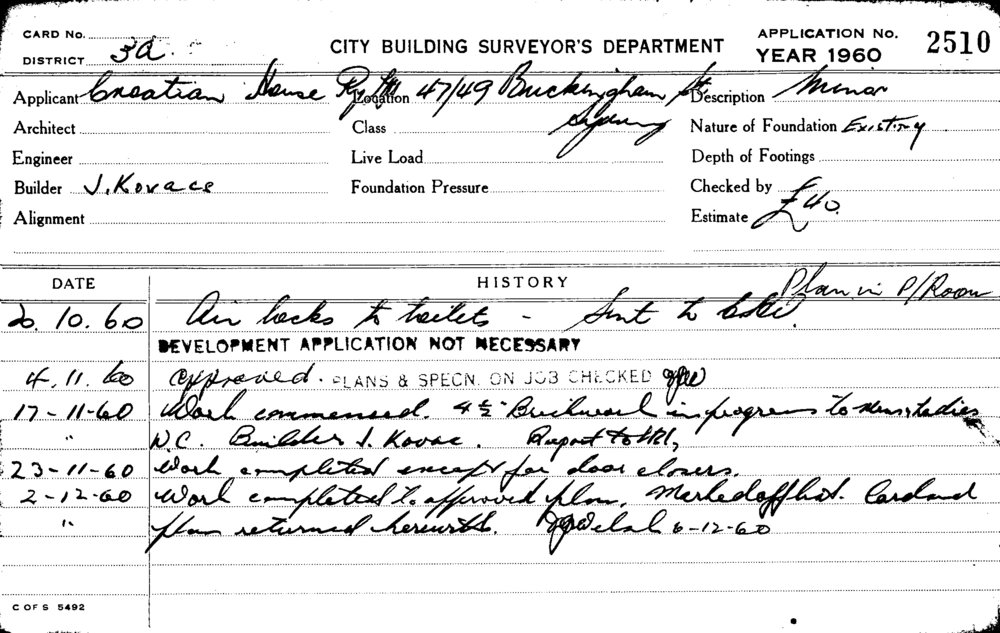 CARD No.
DISTRICT 3A
CITY BUILDING SURVEYOR'S DEPARTMENT
APPLICATION No. 2510
YEAR 1960
Applicant Croatian House Pty Ltd Location 47/49 Buckingham St Sydney Description Minor
Architect Class Nature of Foundation Existing
Engineer Live Load Depth of Footings
Builder J. Kovacs Foundation Pressure Checked by
Alignment Estimate £40.
DATE HISTORY Plan in P/Room
20.10.60 Air locks to toilets - Sent to
DEVELOPMENT APPLICATION NOT NECESSARY
4.11.60 Approved. PLANS & SPECN. ON JOB CHECKED
17-11-60 Work commenced. 4½" Brickwork in progress to mens & ladies
" W.C. Builder J. Kovac. Report to
23-11-60 Work completed except for door closers.
2-12-60 Work completed to approved plan. Marked off list. Card and
" plan returned herewith. 6-12-60
C OF S 5492